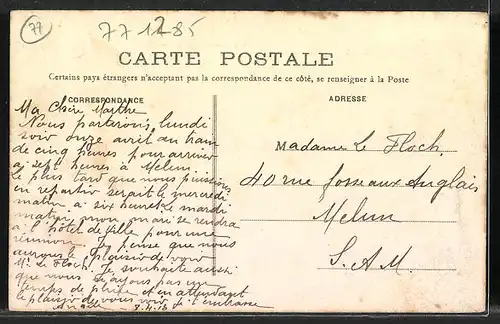 77
77 1285
CARTE POSTALE
Certains pays étrangers n'acceptant pas la correspondance de ce côté, se renseigner à la Poste
CORRESPONDANCE
Ma Chère Marthe
Nous partirons lundi
soir onze avril au train
de cinq heures pour arriver
à sept heures à Melun.
Le plus tard que nous puissions
en repartir serait le mercredi
matin à six heures. Le mardi
matin mon mari se rendra
à l'hôtel de ville pour une
réunion. Je pense que nous
aurons le plaisir de voir
Mr Le Floch. Je souhaite aussi
que nous n'ayons pas un
temps de pluie et en attendant
le plaisir de vous voir je t'embrasse
8.4.10
ADRESSE
Madame Le Floch
40 rue fosse aux Anglais
Melun
S.A.M.